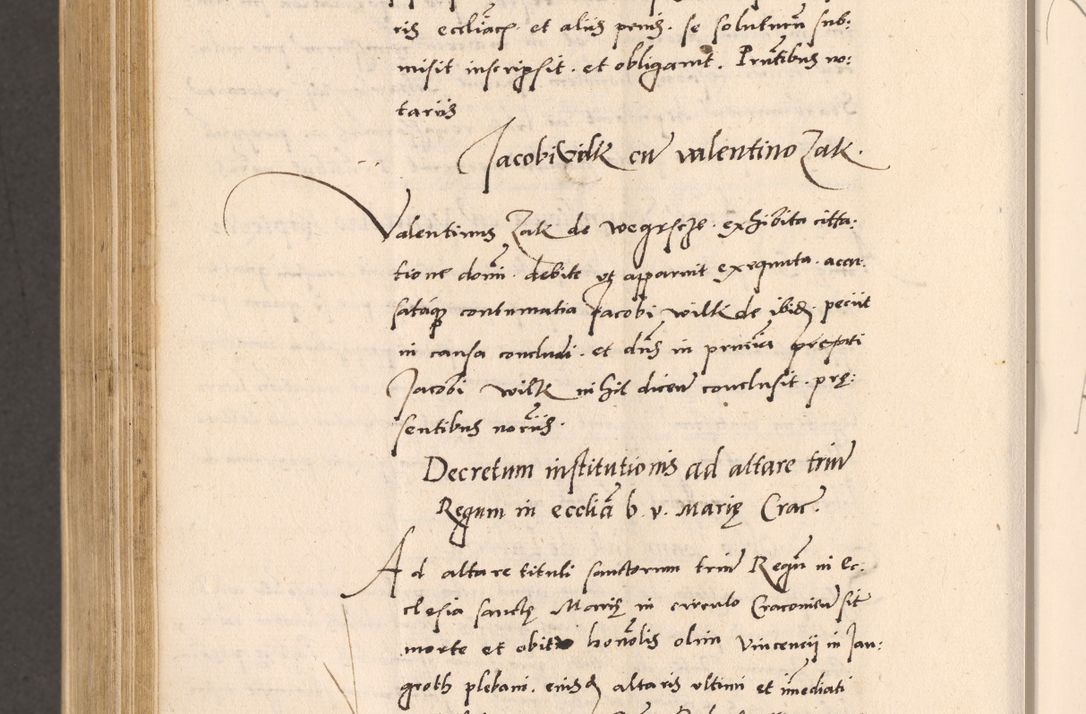 ris eccliac̃ꝝ. et aliis penis. se soluturũ sub:
misit inscripsit. et obligavit. Pñtibus no:
tariis
Jacobi Vilk cũ valentino Zak.
Valentinus Zak de Wegrscze. exhibita citta:
tione domi. debite ut apparuit exequuta. accu:
sataq̃ꝫ contumatia Jacobi Wilk de ibidẽ. peciit
in causa concludi. et dñs in pñciã prefati
Jacobi Wilk nihil dicen̄ conclusit. prę:
sentibus notariis.
Decretum institutionis ad altare triũ
Regum in ecclia b. v. Marię Crac.
Ad altare tituli sanctorum triũ Regũ in Ec:
clesia sanctę Marię in circulo Cracovień sit
morte et obitu honolis olim Vincencii in Jan:
groth plebani. eiusdẽ altaris ultimi et imediati